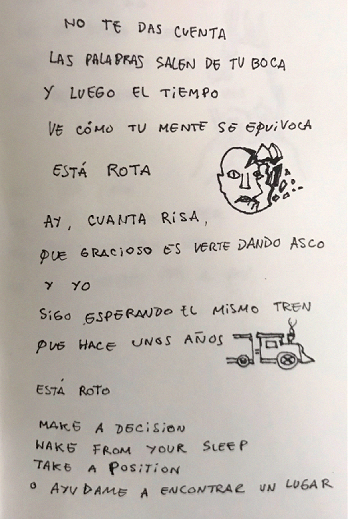 NO TE DAS CUENTA
LAS PALABRAS SALEN DE TU BOCA
Y LUEGO EL TIEMPO
VE CÓMO TU MENTE SE EQUIVOCA
ESTÁ ROTA
AY, CUANTA RISA,
QUE GRACIOSO ES VERTE DANDO ASCO
Y YO
SIGO ESPERANDO EL MISMO TREN
QUE HACE UNOS AÑOS
ESTÁ ROTO
MAKE A DECISION
WAKE FROM YOUR SLEEP
TAKE A POSITION
O AYUDAME A ENCONTRAR UN LUGAR